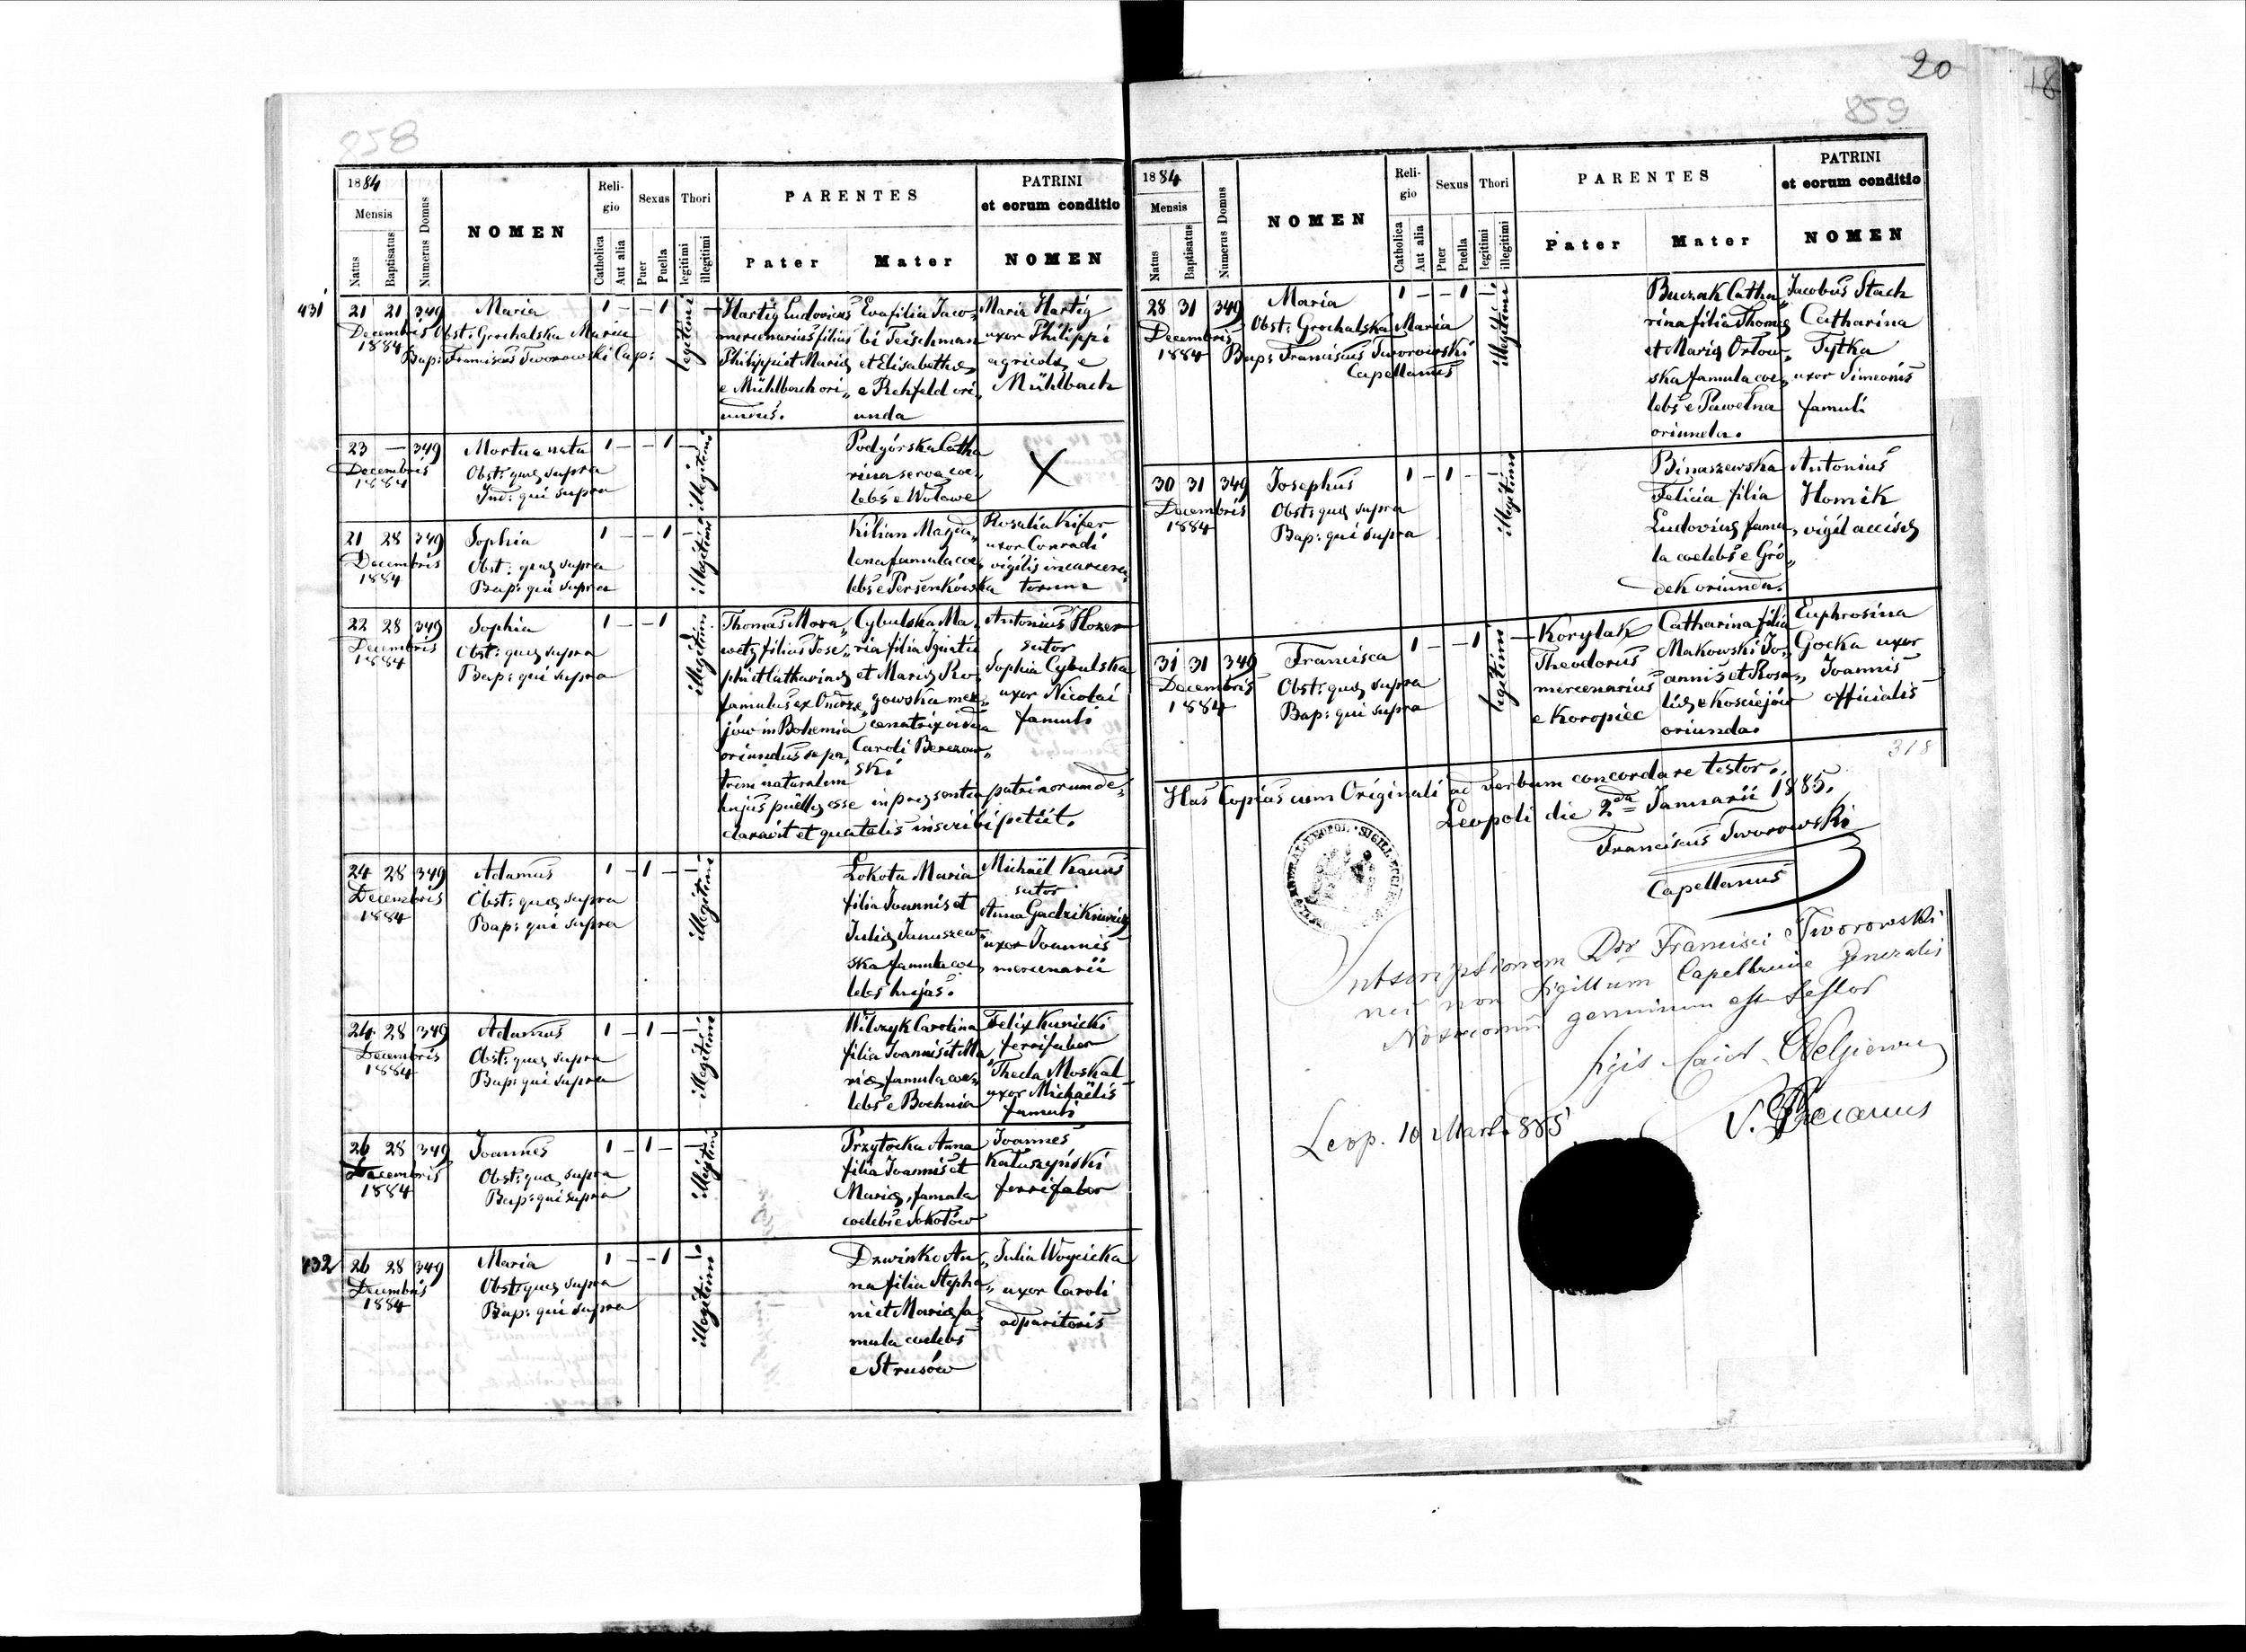 858
1884
Mensis
Natus
Baptisatus
Numerus Domus
NOMEN
Reli-
gio
Catholica
Aut alia
Sexus
Puer
Puella
Thori
legitimi
illegitimi
PARENTES
Pater
Mater
PATRINI
et eorum conditio
NOMEN
431
21 21 349
Decembris
1884
Maria
Obst: Grochalska Maria
Bap: Franciscus Tworowski Cap:
1 — — 1
legitimi
Hartig Ludovicus
mercenarius filius
Philippi et Mariæ
e Mühlbach ori„
undus.
Eva filia Jaco„
bi Teischman
et Elisabethæ
e Rehfeld ori„
unda
Maria Hartig
uxor Philippi
agricolæ e
Mühlbach
23 — 349
Decembris
1884
Mortua nata
Obst: quæ supra
Ind: qui supra
1 — — 1
illegitimi
Podgórska Catha
rina serva coe„
lebs e Wołowe
X
21 28 349
Decembris
1884
Sophia
Obst: quæ supra
Bap: qui supra
1 — — 1
illegitimi
Kilian Magda„
lena famula coe„
lebs e Persenkówka
Rosalia Kifer
uxor Conradi
vigilis incarcera„
torum
22 28 349
Decembris
1884
Sophia
Obst: quæ supra
Bap: qui supra
1 — — 1
illegitimi
Thomas Mora„
wetz filius Jose„
phi et Catharinæ
famulus ex Ondrze„
jów in Bohemia
oriundus se pa„
trem naturalem
hujus puellæ esse in præsentia patrinorum de„
claravit et qua talis inscribi petiit.
Cybulska Ma„
ria filia Ignatii
et Mariæ Ro„
gowska mer„
cenatrix vidua
Caroli Berezow„
ski
Antonius Hozer
sutor
Sophia Cybulska
uxor Nicolai
famuli
24 28 349
Decembris
1884
Adamus
Obst: quæ supra
Bap: qui supra
1 — 1 —
illegitimi
Łokota Maria
filia Joannis et
Juliæ Januszew„
ska famula coe„
lebs hujas.
Michaël Kauns
sutor
Anna Gadzikiewicz
uxor Joannis
mercenarii
24 28 349
Decembris
1884
Adamus
Obst: quæ supra
Bap: qui supra
1 — 1 —
illegitimi
Wilczyk Carolina
filia Joannis et Ma„
riæ famula coe„
lebs e Bochnia
Felix Kunicki
ferrifaber
Thecla Moskal
uxor Michaëlis
famuli
26 28 349
Decembris
1884
Joannes
Obst: quæ supra
Bap: qui supra
1 — 1 —
illegitimi
Przytocka Anna
filia Joannis et
Mariæ, famula
coelebs e Sokołów
Joannes
Kałuszyński
ferrifaber
432
26 28 349
Decembris
1884
Maria
Obst: quæ supra
Bap: qui supra
1 — — 1
illegitimi
Dzwinko An„
na filia Stepha„
ni et Mariæ fa„
mula coelebs
e Strusów
Julia Woycicka
uxor Caroli
adparitoris
20
18
859
1884
Mensis
Natus
Baptisatus
Numerus Domus
NOMEN
Reli-
gio
Catholica
Aut alia
Sexus
Puer
Puella
Thori
legitimi
illegitimi
PARENTES
Pater
Mater
PATRINI
et eorum conditio
NOMEN
28 31 349
Decembris
1884
Maria
Obst: Grochalska Maria
Bap: Franciscus Tworowski
Capellanus
1 — — 1
illegitimi
Buczak Catha„
rina filia Thomæ
et Mariæ Orłow„
ska famula coe„
lebs e Pawełna
oriunda.
Jacobus Stach
Catharina
Tytka
uxor Simeonis
famuli
30 31 349
Decembris
1884
Josephus
Obst: quæ supra
Bap: qui supra
1 — 1 —
illegitimi
Binaszewska
Felicia filia
Ludovicæ famu„
la coelebs e Gró„
dek oriunda.
Antonius
Homik
vigil accisæ
31 31 349
Decembris
1884
Francisca
Obst: quæ supra
Bap: qui supra
1 — — 1
legitimi
Korylak
Theodorus
mercenarius
e Koropiec
Catharina filia
Makowski Jo„
annis et Rosa„
liæ e Kościejów
oriunda.
Euphrosina
Gocka uxor
Joannis
officialis
318
Has Copias cum Originali ad verbum concordare testor.
Leopoli die 2da Januarii 1885.
Franciscus Tworowski
Capellanus
Subscriptionem Dni Francisci Tworowski
nec non sigillum Capellaniae generalis
Nosocomii genuinum esse testor
Leop. 10 Mart. 885
V. Decanus